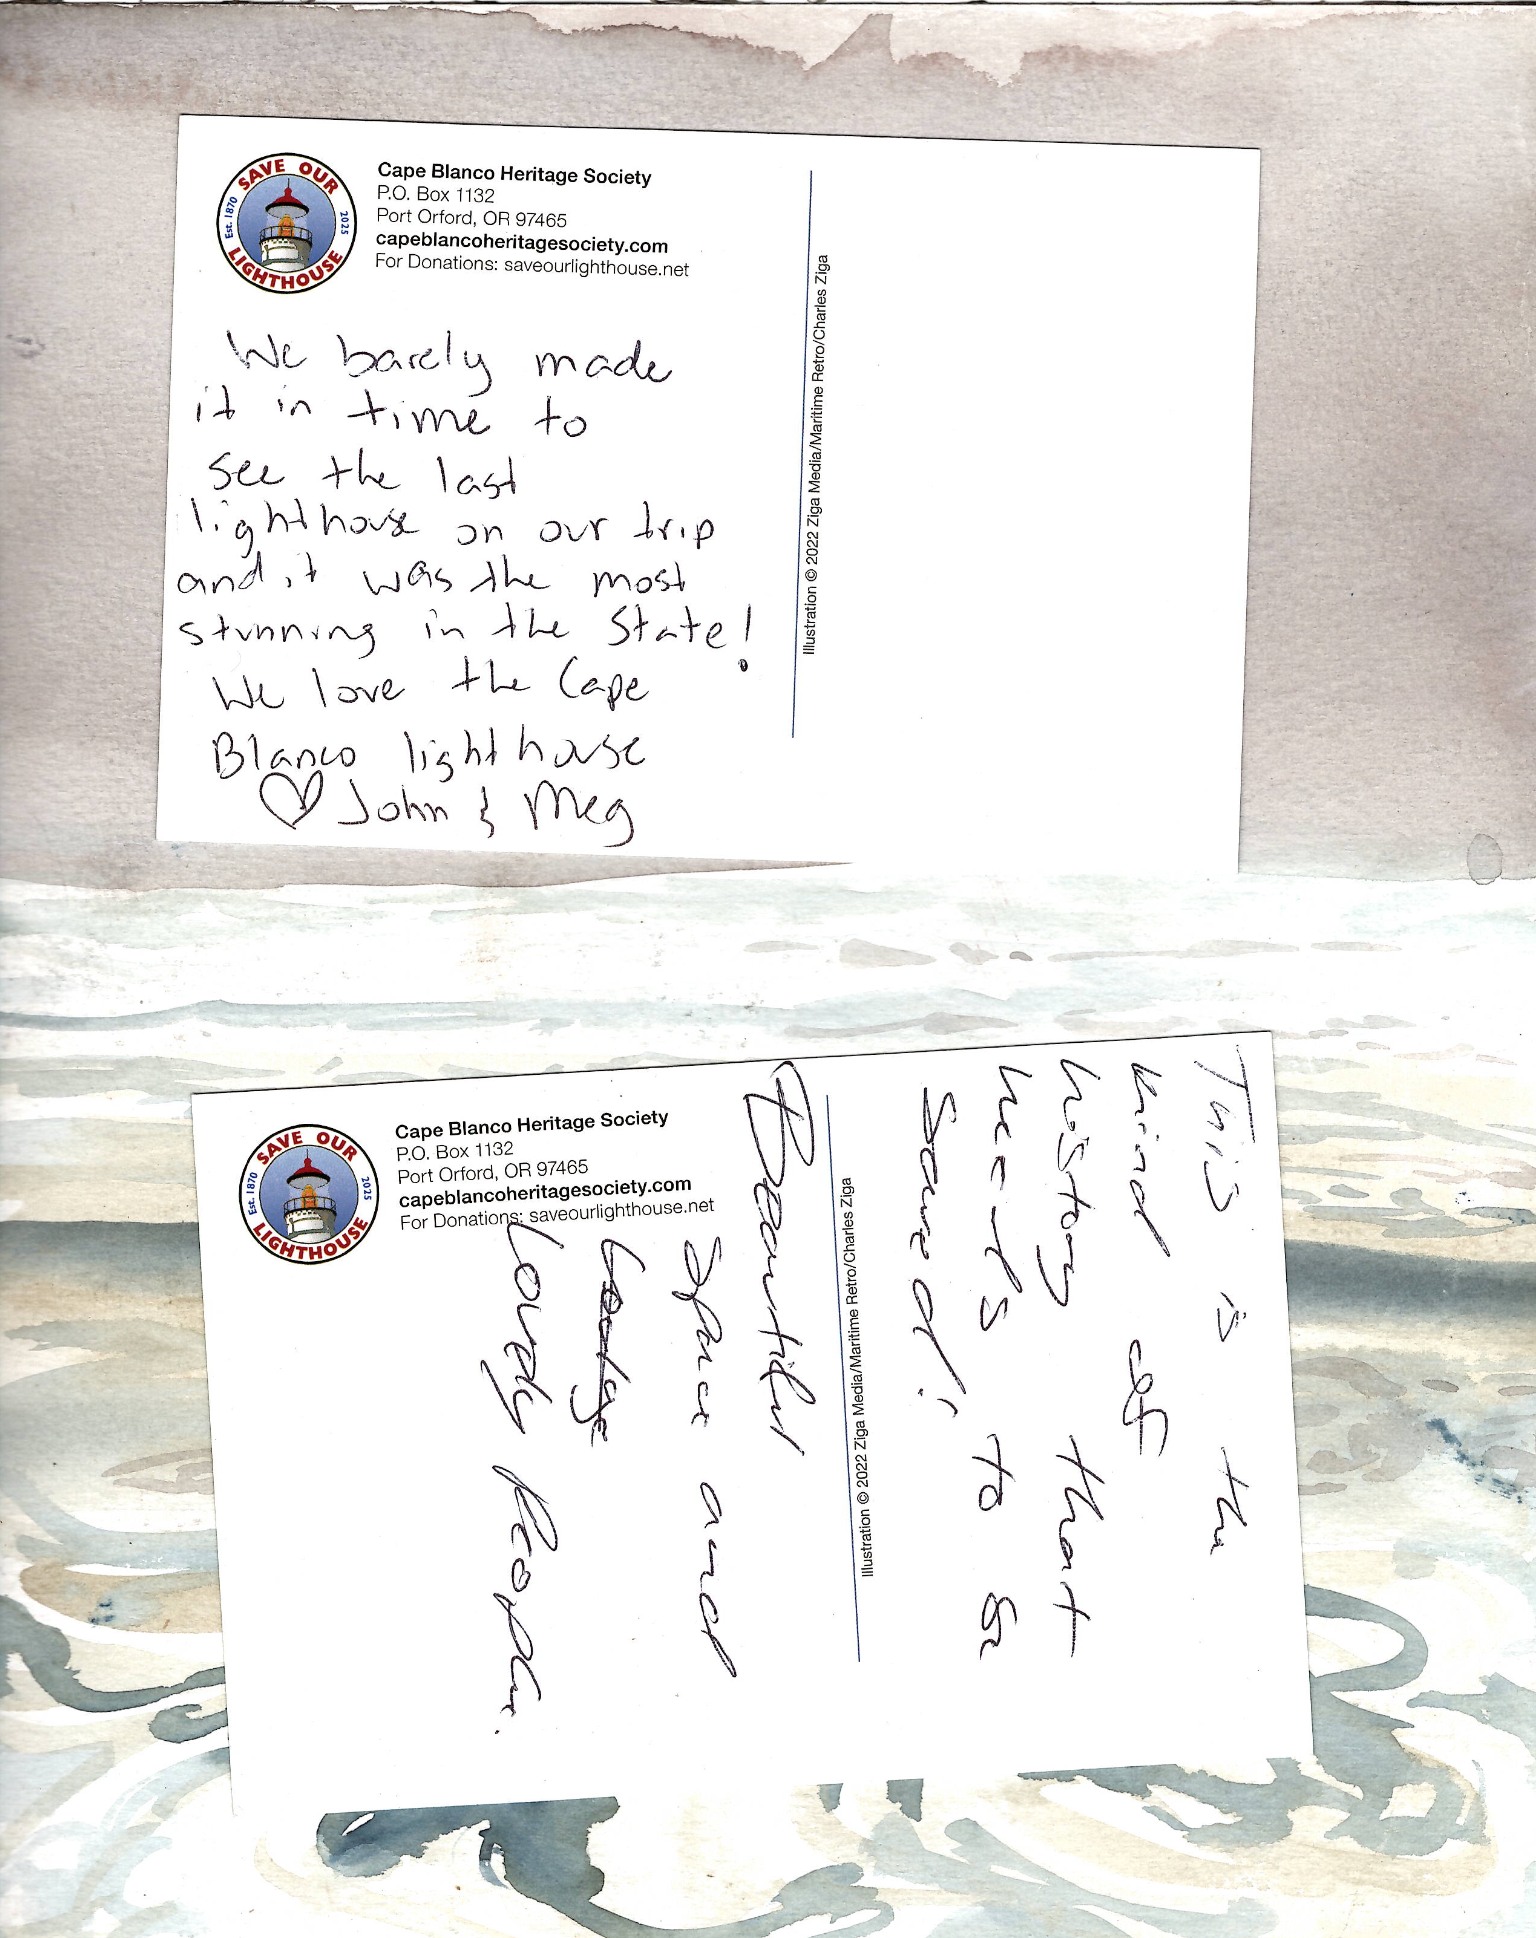 SAVE OUR
LIGHTHOUSE
Est. 1870
2025
Cape Blanco Heritage Society
P.O. Box 1132
Port Orford, OR 97465
capeblancoheritagesociety.com
For Donations: saveourlighthouse.net
We barely made
it in time to
see the last
lighthouse on our trip
and it was the most
stunning in the State!
We love the Cape
Blanco lighthouse
♡ John & Meg
Illustration © 2022 Ziga Media/Maritime Retro/Charles Ziga
SAVE OUR
LIGHTHOUSE
Est. 1870
2025
Cape Blanco Heritage Society
P.O. Box 1132
Port Orford, OR 97465
capeblancoheritagesociety.com
For Donations: saveourlighthouse.net
This is the
kind of
history that
needs to be
saved!
Beautiful
space and
lovely people.
Illustration © 2022 Ziga Media/Maritime Retro/Charles Ziga